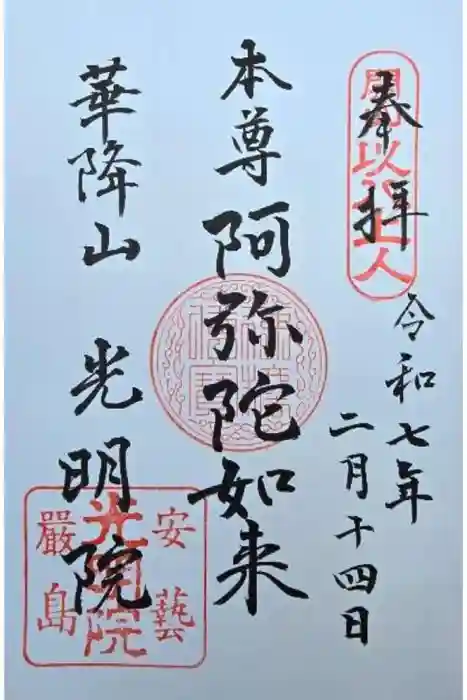 奉拝
開基以八上人
令和七年
二月十四日
本尊 阿弥陀如来
華降山 光明院
安藝
光明院
嚴島